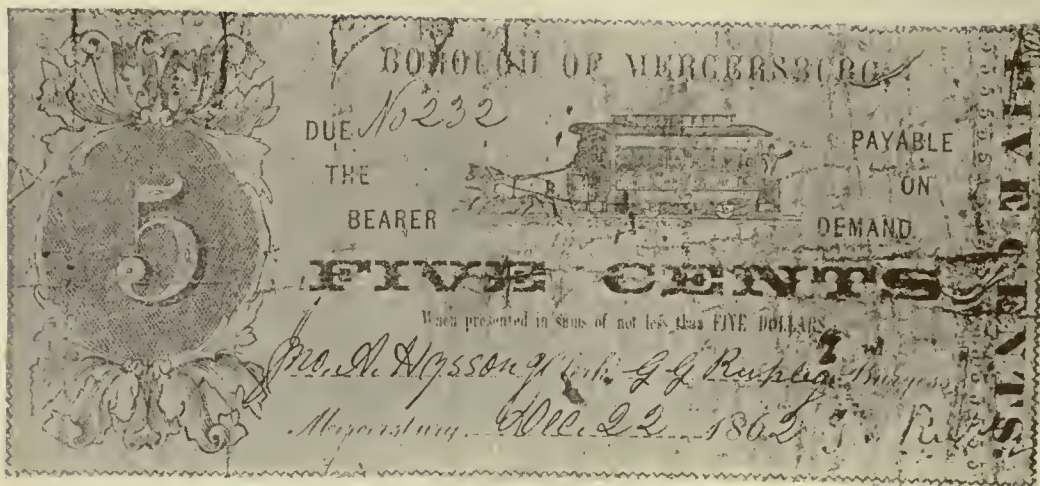 BOROUGH OF MERCERSBURG
No 232
DUE THE BEARER
PAYABLE ON DEMAND
5
FIVE CENTS
When presented in sums of not less than FIVE DOLLARS
Jno. A. Hyssong Clerk G G Burgess
Mercersburg Dec. 22 1862
FIVE CENTS